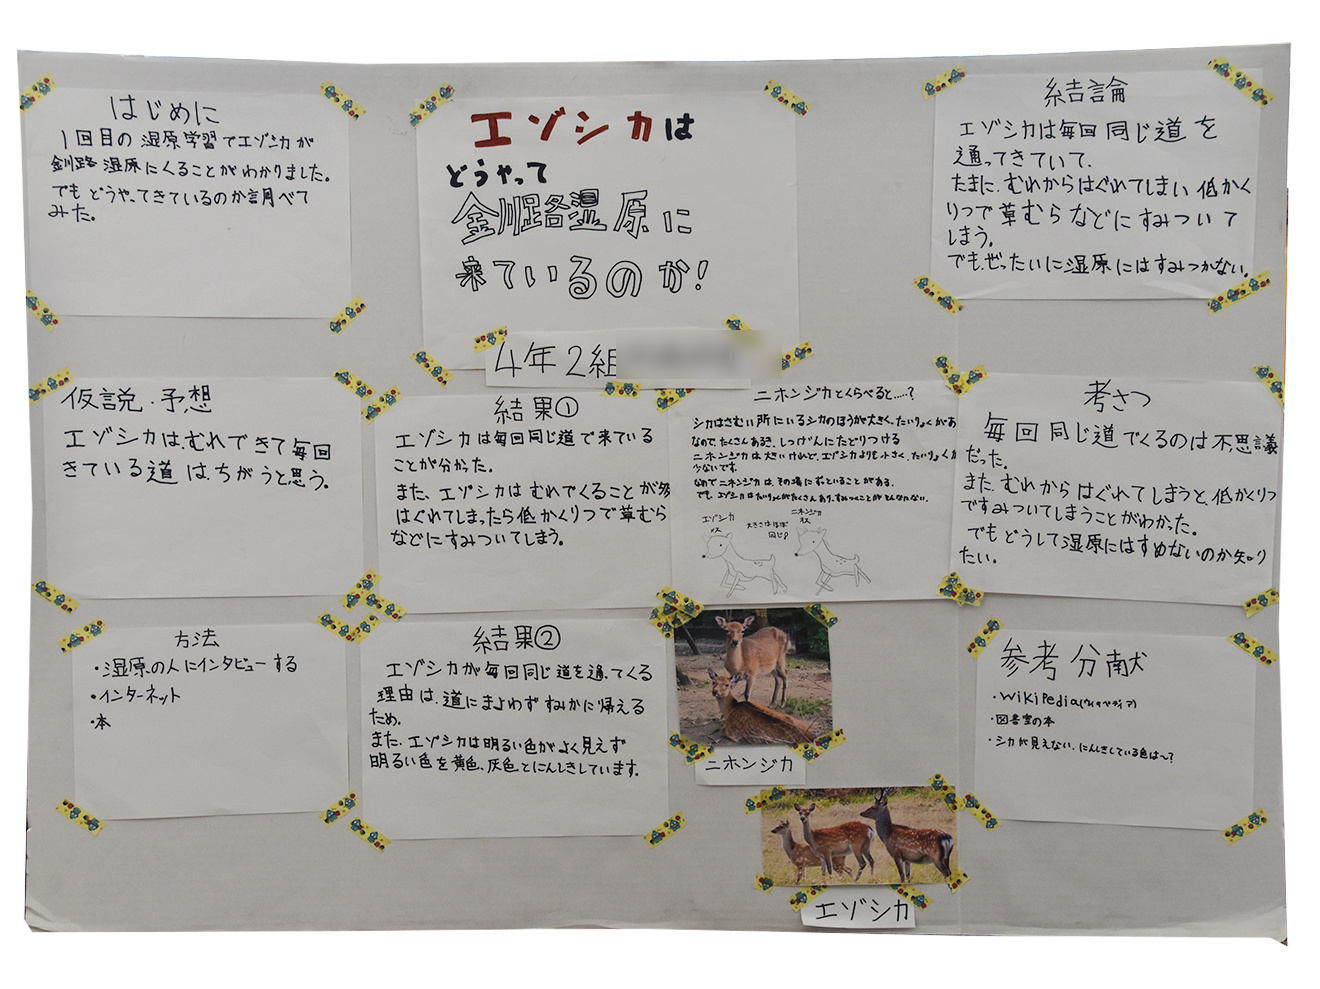 はじめに
1回目の湿原学習でエゾシカが
釧路湿原にくることがわかりました。
でもどうやってきているのか調べて
みた。
エゾシカは
どうやって
釧路湿原に
来ているのか!
4年2組
結論
エゾシカは毎回同じ道を
通ってきていて、
たまに、むれからはぐれてしまい低かく
りつで草むらなどにすみついて
しまう。
でも、ぜったいに湿原にはすみつかない。
仮説・予想
エゾシカは、むれできて毎回
きている道は、ちがうと思う。
結果①
エゾシカは毎回同じ道で来ている
ことが分かった。
また、エゾシカはむれでくることが多
はぐれてしまったら低かくりつで草むら
などにすみついてしまう。
ニホンジカとくらべると……?
シカはさむい所にいるシカのほうが大きく、たいりょくがあ
なので、たくさんあるき、しつげんにたどりつける
ニホンジカは大きいけれど、エゾシカよりも小さく、たいりょくが
少ないです。
なのでニホンジカは、その場にずっといることがある。
でも、エゾシカはたいりょくがたくさんあり、すみつくことがそんなにない。
エゾシカ
メス
大きさはほぼ
同じ!
ニホンジカ
オス
考さつ
毎回同じ道でくるのは不思議
だった。
また、むれからはぐれてしまうと、低かくりつ
ですみついてしまうことがわかった。
でもどうして湿原にはすめないのか知り
たい。
方法
・湿原の人にインタビューする
・インターネット
・本
結果②
エゾシカが毎回同じ道を通ってくる
理由は、道にまよわずすみかに帰える
ため。
また、エゾシカは明るい色がよく見えず
明るい色を黄色、灰色とにんしきしています。
ニホンジカ
エゾシカ
参考分献
・WikiPedia(ウィキペディア)
・図書室の本
・シカが見えない、にんしきしている色は〜?